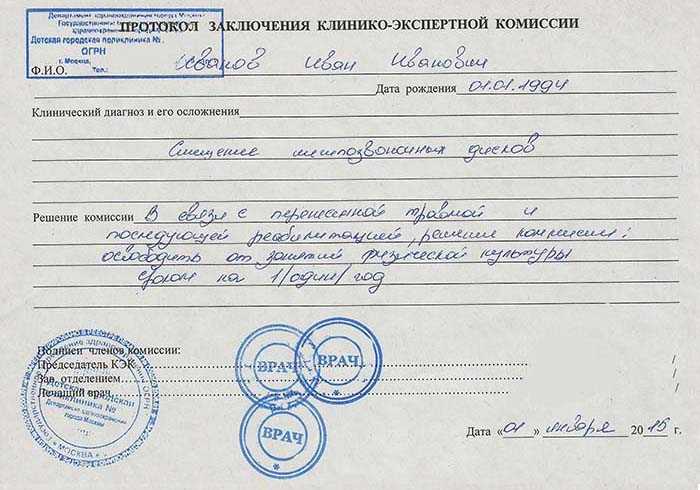 Департамент здравоохранения города Москвы
Государственное
здравоохранения
Детская городская поликлиника №
ОГРН
г. Москва,
Тел.:
ПРОТОКОЛ ЗАКЛЮЧЕНИЯ КЛИНИКО-ЭКСПЕРТНОЙ КОМИССИИ
Ф.И.О. Иванов Иван Иванович
Дата рождения 01.01.1994
Клинический диагноз и его осложнения
Смещение межпозвоночных дисков
Решение комиссии В связи с перенесенной травмой и
последующей реабилитацией, решение комиссии:
освободить от занятий физической культуры
сроком на 1/один/ год
Подписи членов комиссии:
Председатель КЭК
Зав. отделением
Лечащий врач
ВРАЧ
ВРАЧ
ВРАЧ
Детская городская
поликлиника №
Департамент здравоохранения
города Москвы
* МОСКВА *
Дата «01» января 2015 г.